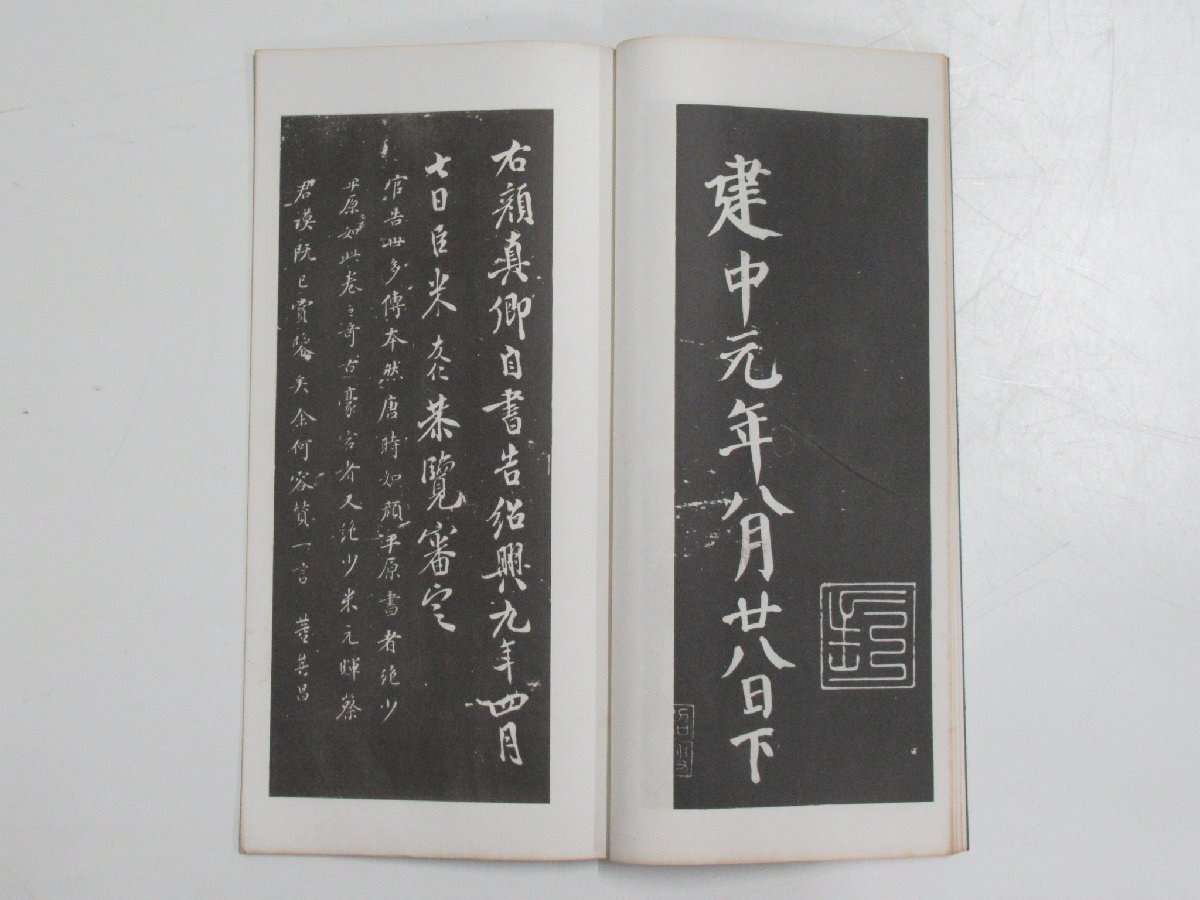 建中元年八月廿八日下
右顏真卿自書告紹興九年四月
七日臣米友仁恭覽審定
官告世多傳本然唐時如顏平原書者絶少
平原如此卷之奇古豪宕者又絶少米元暉蔡
君謨既已賞鑒矣余何容贊一言 董其昌